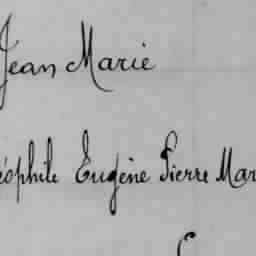 Jean Marie
éophile Eugène Pierre Mar